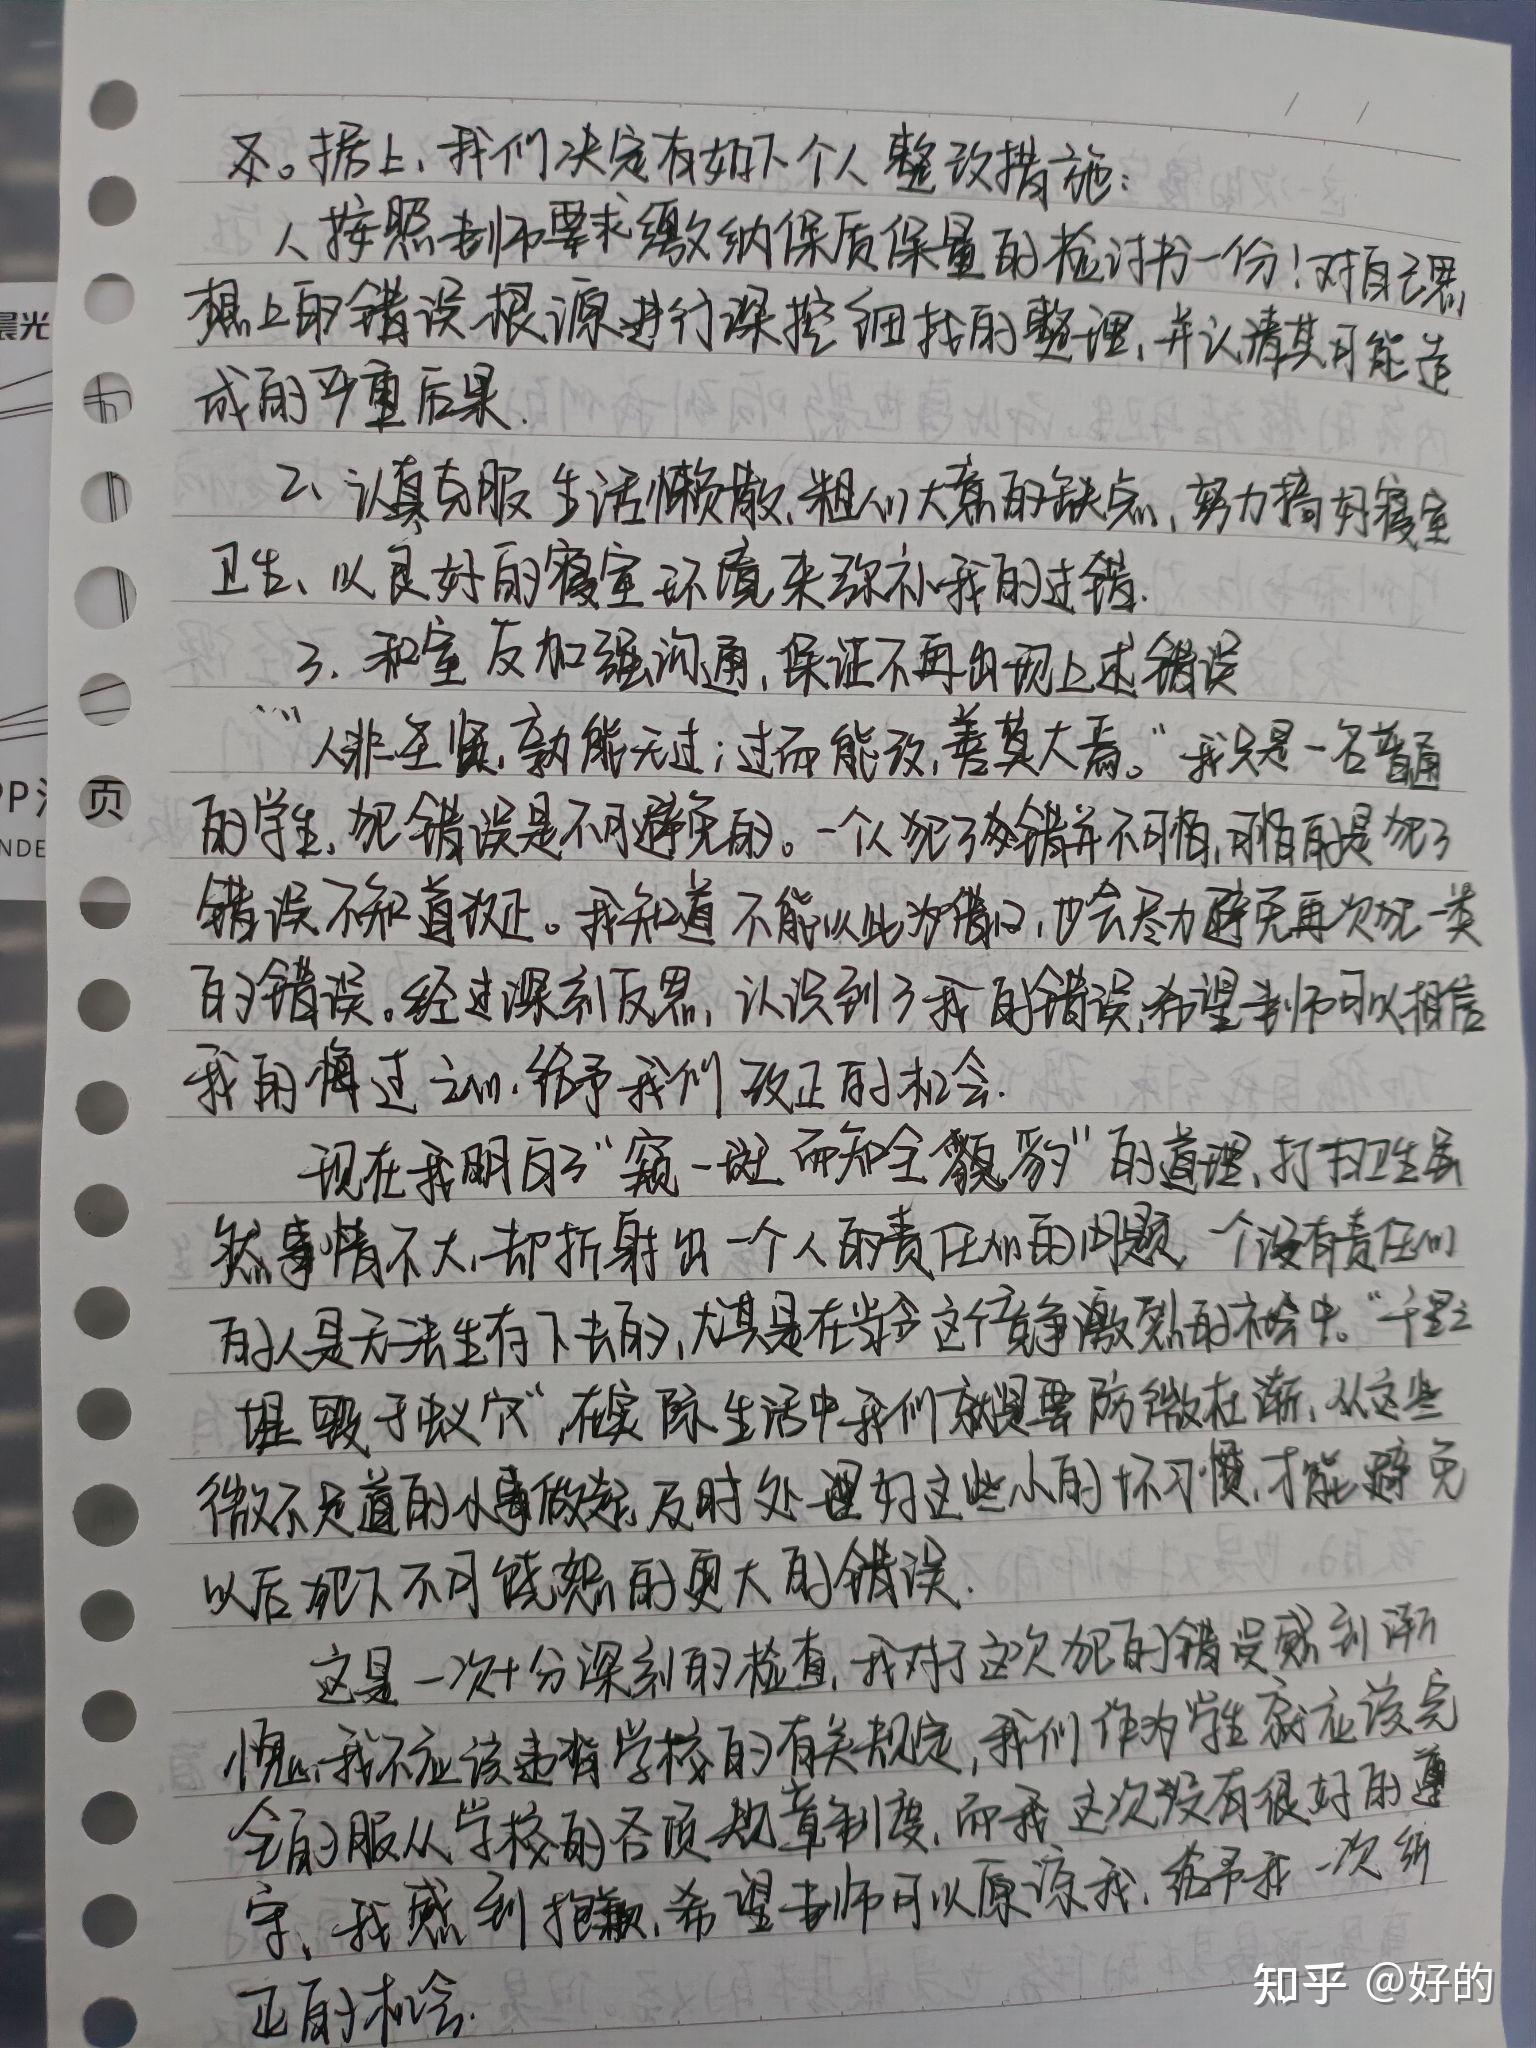 及。据上、我们决定有如下个人整改措施：
1、按照老师要求缴纳保质保量的检讨书一份！对自己思
想上的错误根源进行深挖细找的整理，并认清其可能造
成的严重后果.
2、认真克服生活懒散、粗心大意的缺点，努力搞好寝室
卫生、以良好的寝室环境来弥补我的过错.
3. 和室友加强沟通，保证不再出现上述错误
“人非圣贤，孰能无过；过而能改，善莫大焉。”我只是一名普通
的学生，犯错误是不可避免的。一个人犯了错并不可怕，可怕的是犯了
错误不知道改正。我知道不能以此为借口，也会尽力避免再次犯一类
的错误。经过深刻反思，认识到了我的错误，希望老师可以相信
我的悔过之心，给予我们改正的机会.
现在我明白了“窥一斑而知全豹”的道理，打扫卫生虽
然事情不大，却折射出一个人的责任心的问题，一个没有责任心
的人是无法生存下去的，尤其是在当今这个竞争激烈的社会中。“千里之
堤毁于蚁穴”，在实际生活中我们就是要防微杜渐，从这些
微不足道的小事做起，及时处理好这些小的坏习惯，才能避免
以后犯下不可饶恕的更大的错误.
这是一次十分深刻的检查，我对于这次犯的错误感到渐
愧，我不应该违背学校的有关规定，我们作为学生就应该完
全的服从学校的各项规章制度，而我这次没有很好的遵
守、我感到抱歉，希望老师可以原谅我，给予我一次纠
正的机会.
页
晨光
知乎 @好的